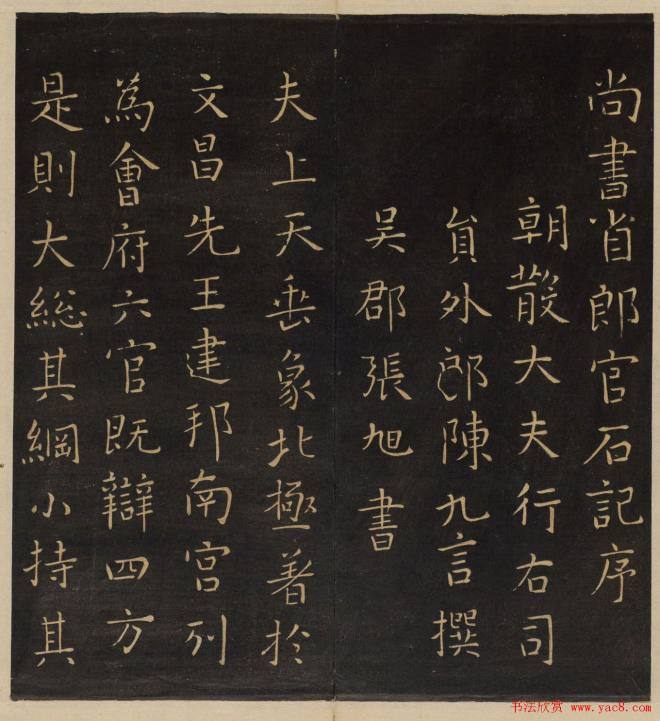 尚書省郎官石記序
朝散大夫行右司
員外郎陳九言撰
吳郡張旭書
夫上天垂象北極著於
文昌先王建邦南宮列
為會府六官既辯四方
是則大總其綱小持其
书法欣赏 www.yac8.com